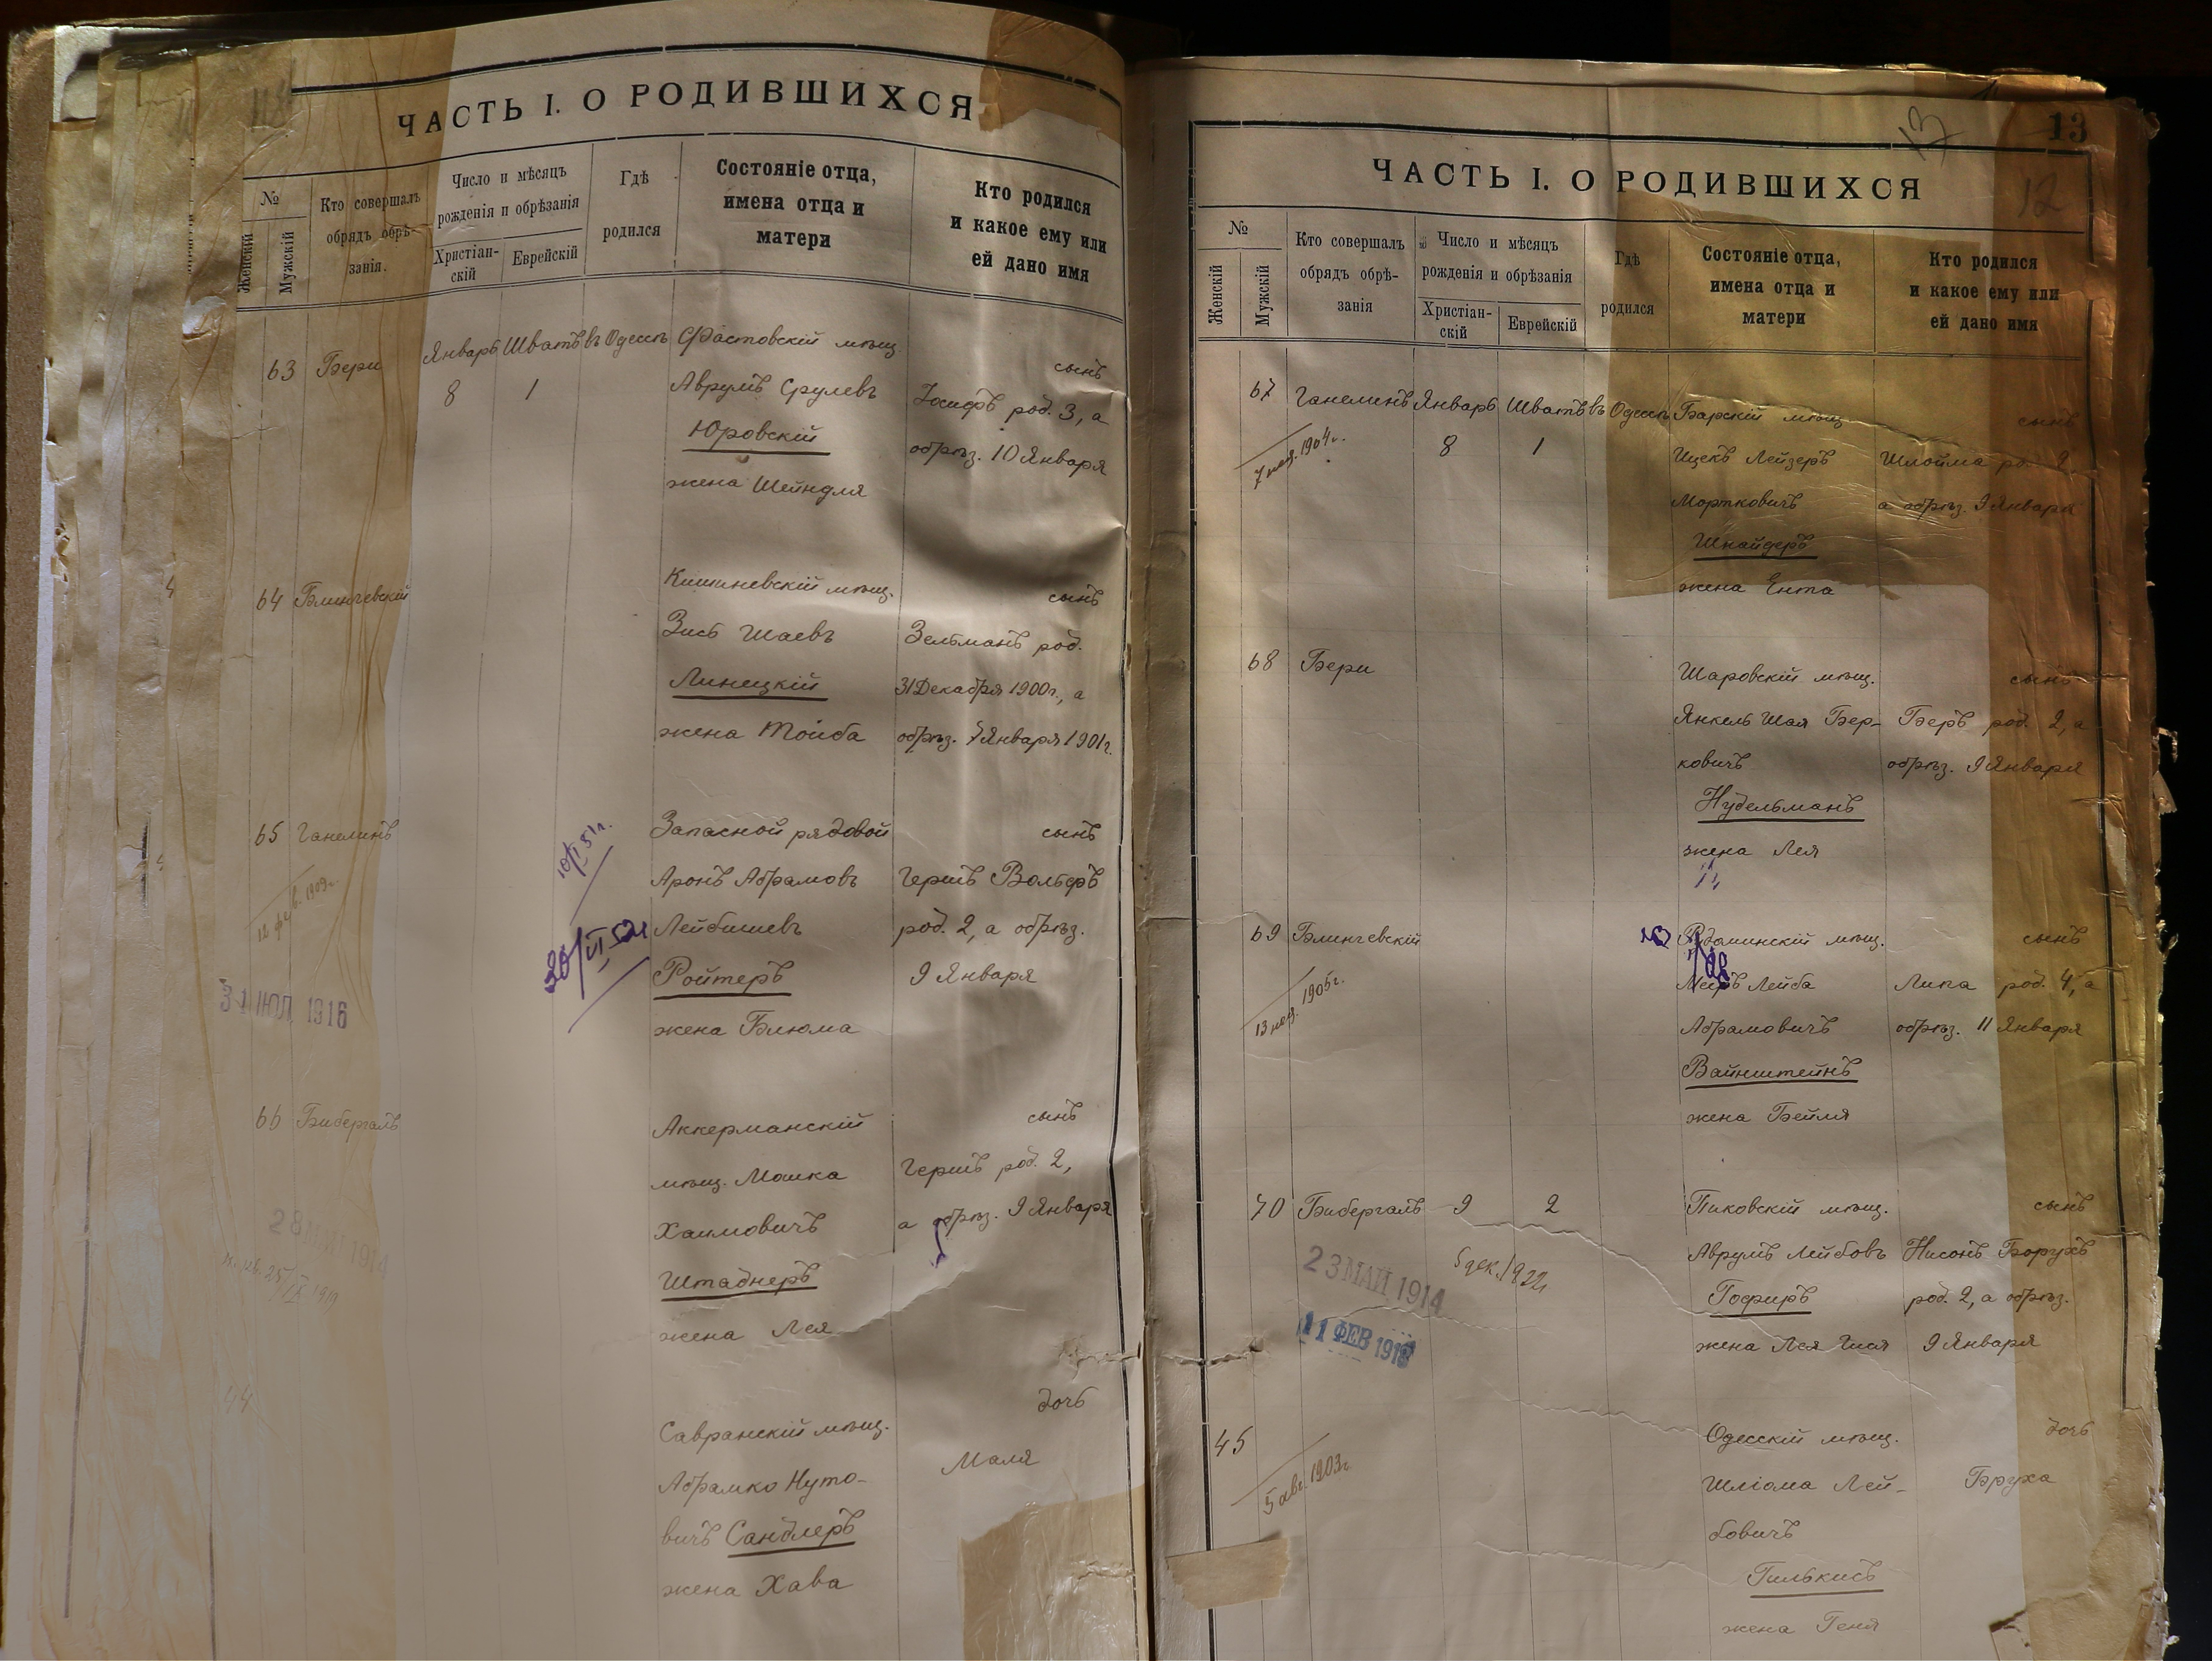 ЧАСТЬ I. О РОДИВШИХСЯ
№
Женскій
Мужскій
Кто совершалъ
обрядъ обрѣ-
занія.
Число и мѣсяцъ
рожденія и обрѣзанія
Христіан-
скій
Еврейскій
Гдѣ
родился
Состояніе отца,
имена отца и
матери
Кто родился
и какое ему или
ей дано имя
63 Бери Январь Шватъ въ Одессѣ Фастовскій мѣщ. сынъ
8 1 Аврумъ Срулевъ Іосифъ род. 3, а
Юровскій обрѣз. 10 Января
жена Шейндля
64 Блинчевскій Кишиневскій мѣщ. сынъ
Зись Шаевъ Зельманъ род.
Линецкій 31 Декабря 1900г., а
жена Тойба обрѣз. 7 Января 1901г.
65 Ганелинъ Запасной рядовой сынъ
10/I 51г.
Аронъ Абрамовъ Гершъ Вольфъ
12 фев. 1909г.
Лейбишевъ род. 2, а обрѣз.
Ройтеръ 9 Января
31 ИЮЛ 1916
жена Блюма
66 Бибергалъ Аккерманскій сынъ
мѣщ. Мошка Гершъ род. 2,
Хаимовичъ а обрѣз. 9 Января
28 1914
Штаднеръ
жена Лея
44 Савранскій мѣщ. дочь
Абрамко Нуто- Маля
вичъ Сандлеръ
жена Хава
13
13
12
ЧАСТЬ I. О РОДИВШИХСЯ
№
Женскій
Мужскій
Кто совершалъ
обрядъ обрѣ-
занія
Число и мѣсяцъ
рожденія и обрѣзанія
Христіан-
скій
Еврейскій
Гдѣ
родился
Состояніе отца,
имена отца и
матери
Кто родился
и какое ему или
ей дано имя
67 Ганелинъ Январь Шватъ въ Одессѣ Барскій мѣщ. сынъ
1904г. 8 1 Ицекъ Лейзеръ Шлойма род. 2,
Мортковичъ а обрѣз. 9 Января
Шнайдеръ
жена Ента
68 Бери Шаровскій мѣщ. сынъ
Янкель Шая Бер- Беръ род. 2, а
ковичъ обрѣз. 9 Января
Нудельманъ
жена Лея
69 Блинчевскій мѣщ. сынъ
1905г. Лейба Липа род. 4, а
Абрамовичъ обрѣз. 11 Января
Вайнштейнъ
жена Бейля
70 Бибергалъ 9 2 Пиковскій мѣщ. сынъ
Аврумъ Лейбовъ Нисонъ Борухъ
23 МАЙ 1914
5 дек. 1922
Гофиръ род. 2, а обрѣз.
11 ФЕВ
жена Лея 9 Января
45 Одесскій мѣщ. дочь
5 авг. 1903г.
Шліома Лей- Бруха
бовичъ
Гилькисъ
жена Геня